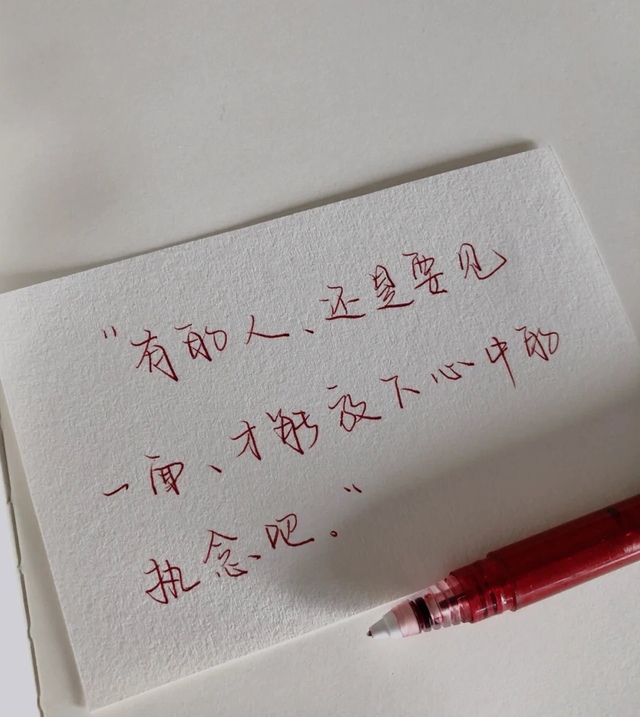 "有的人、还是要见
一面、才能放下心中的
执念吧。"